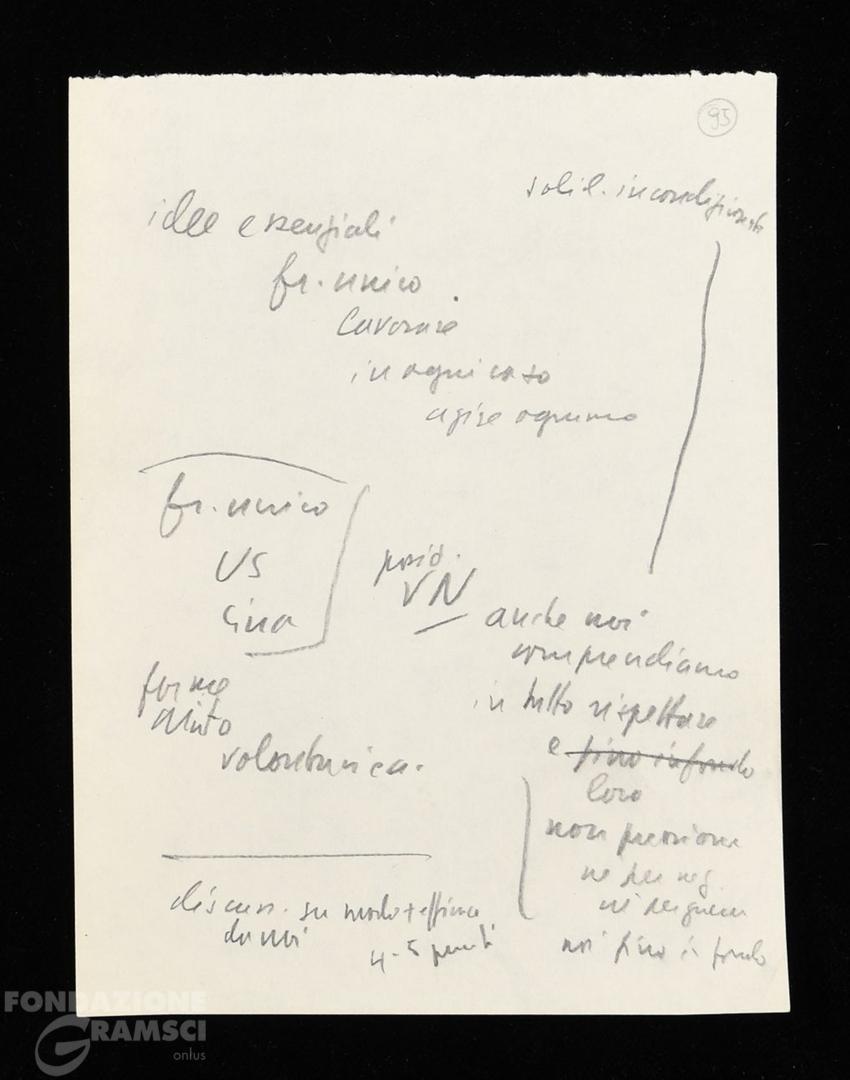 95
solid. incondizionata
idee essenziali
fr. unico
lavorare
in ogni caso
agire ognuno
fr. unico
US
Cina
posiz.
VN
anche noi
comprendiamo
in tutto rispettare
e fino in fondo
loro
non pressione
nè per neg.
nè per guerra
noi fino in fondo
forme
aiuto
volont
discuss. su modo + efficace
da noi
4-5 punti
FONDAZIONE
GRAMSCI
onlus